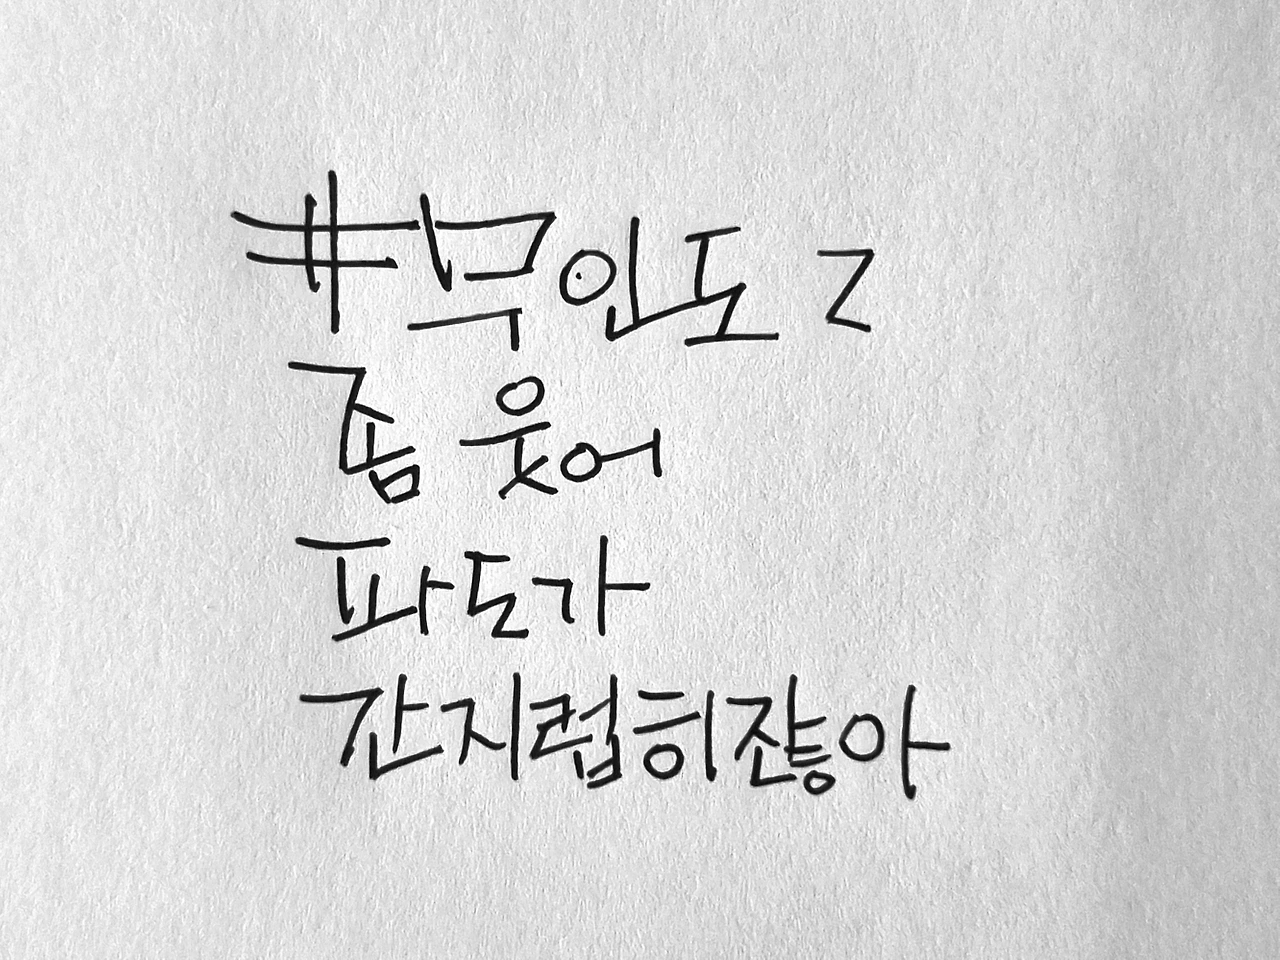 #무인도 2
좀 웃어
파도가
간지럽히쟎아